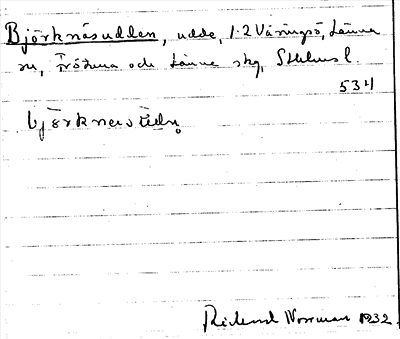 Björknäsudden, udde, 1-2 Väringsö, Länna
sn, Frötuna och Länna skg, Sthlms l.
534
Richard Norrman 1932.